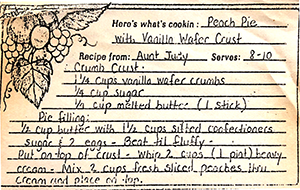 Here's what's cookin: Peach Pie
with Vanilla Wafer Crust
Recipe from: Aunt Judy Serves: 8-10
Crumb Crust:
1 1/4 cups vanilla wafer crumbs
1/4 cup sugar
1/3 cup melted butter (1 stick)
Pie filling:
1/2 cup butter with 1 1/2 cups sifted confectioners
sugar & 2 eggs - Beat til fluffy -
Put on top of crust - Whip 2 cups (1 pint) heavy
cream - Mix 2 cups fresh sliced peaches thru
cream and place on top.